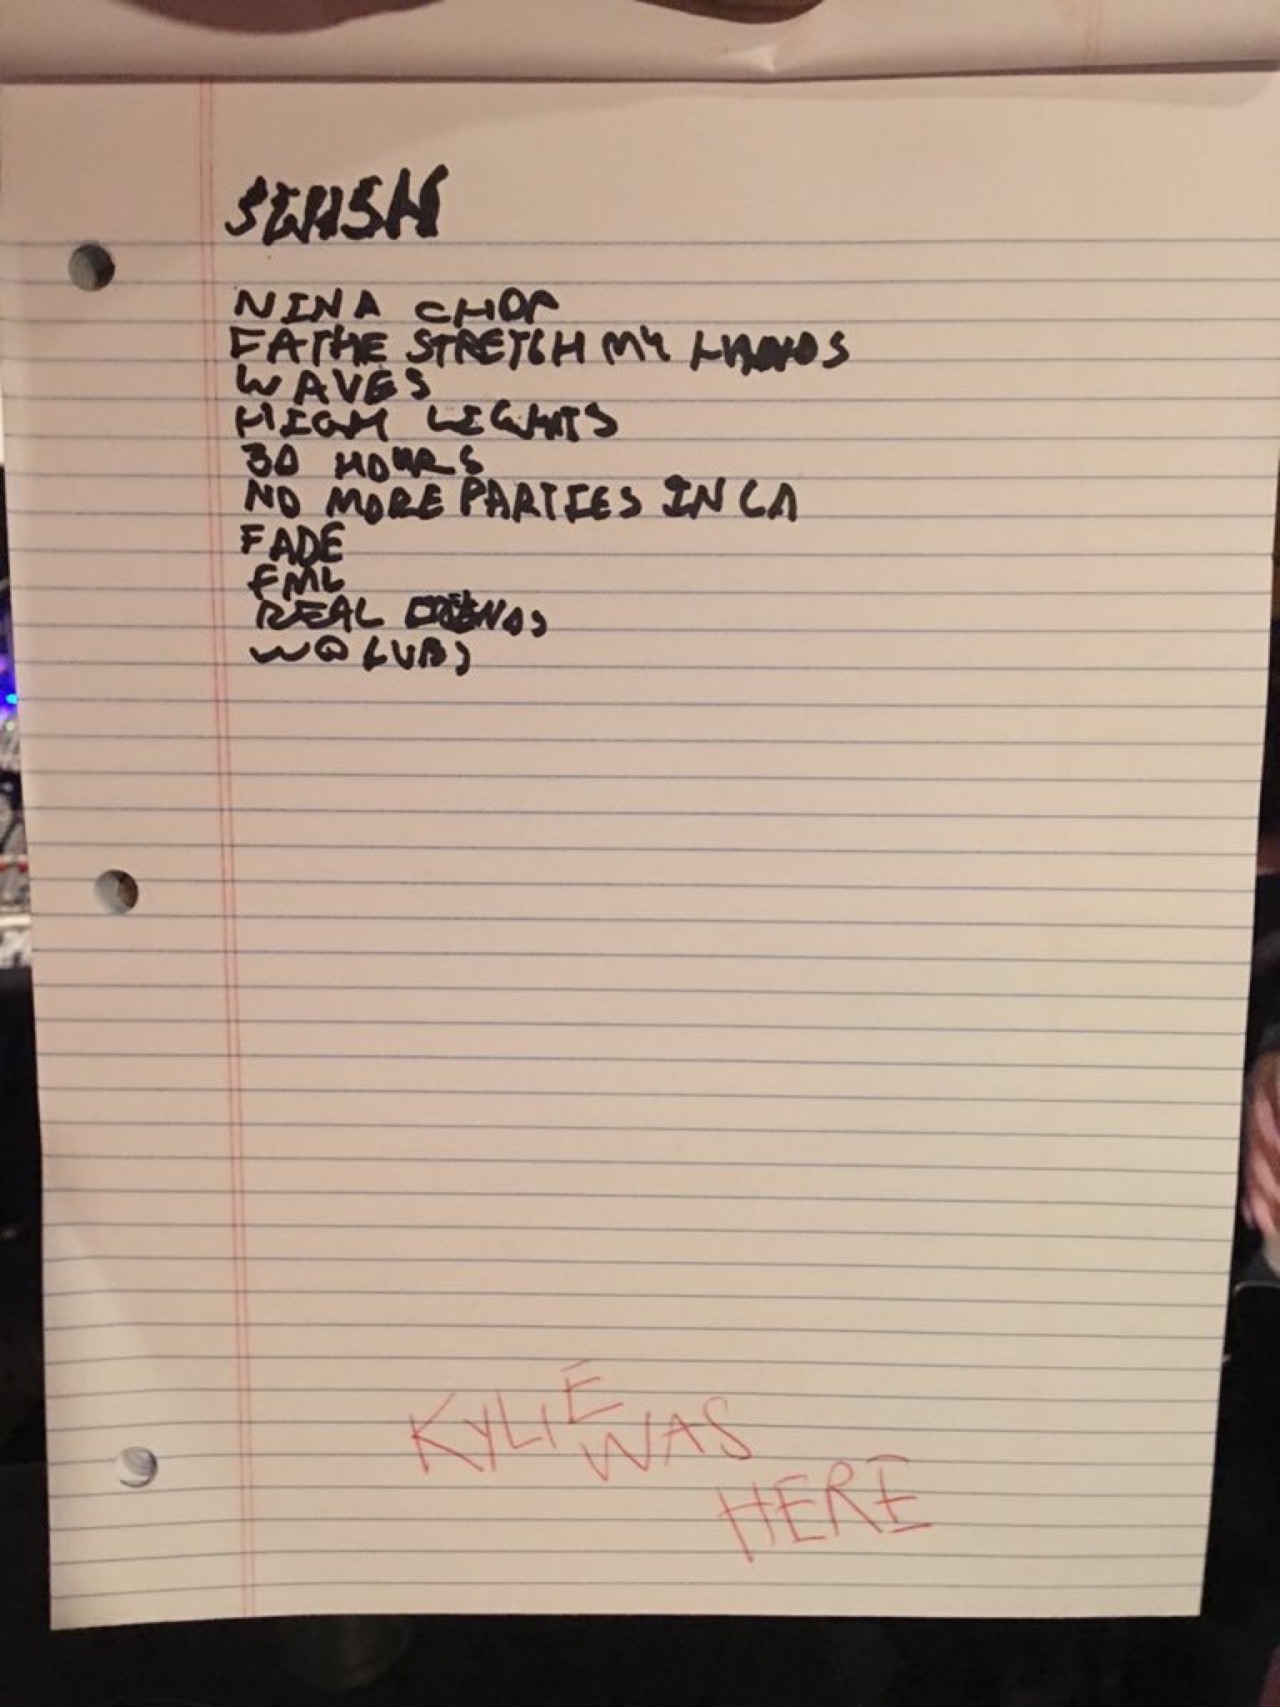 NINA CHOP
FATHE STRETCH MY HANDS
WAVES
HIGH LIGHTS
30 HOURS
NO MORE PARTIES IN LA
FADE
FML
REAL FRIENDS
WOLVES
KYLIE WAS HERE